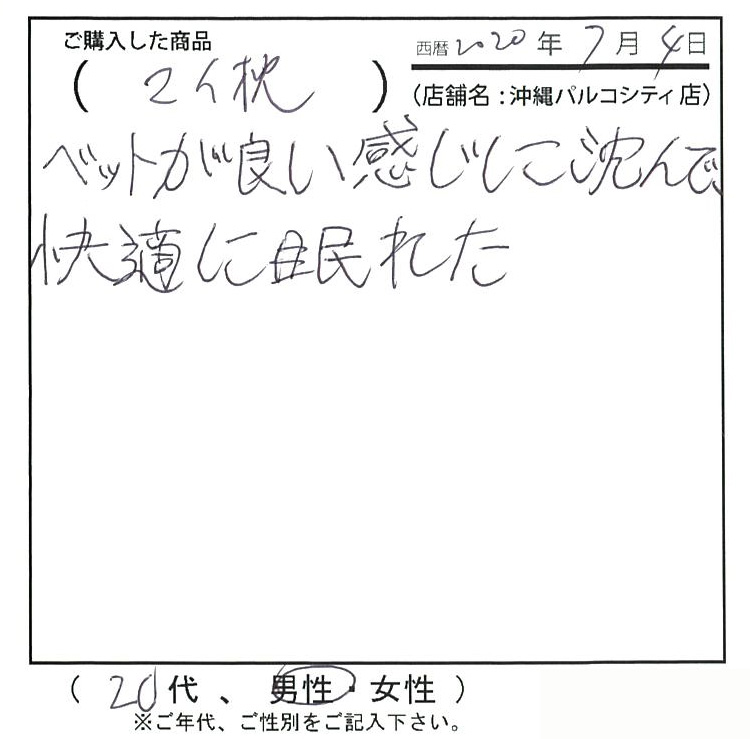 ご購入した商品
西暦2020年7月4日
(マイ枕)
(店舗名:沖縄パルコシティ店)
ベットが良い感じに沈んで、
快適に眠れた
(20代、男性・女性)
※ご年代、ご性別をご記入下さい。